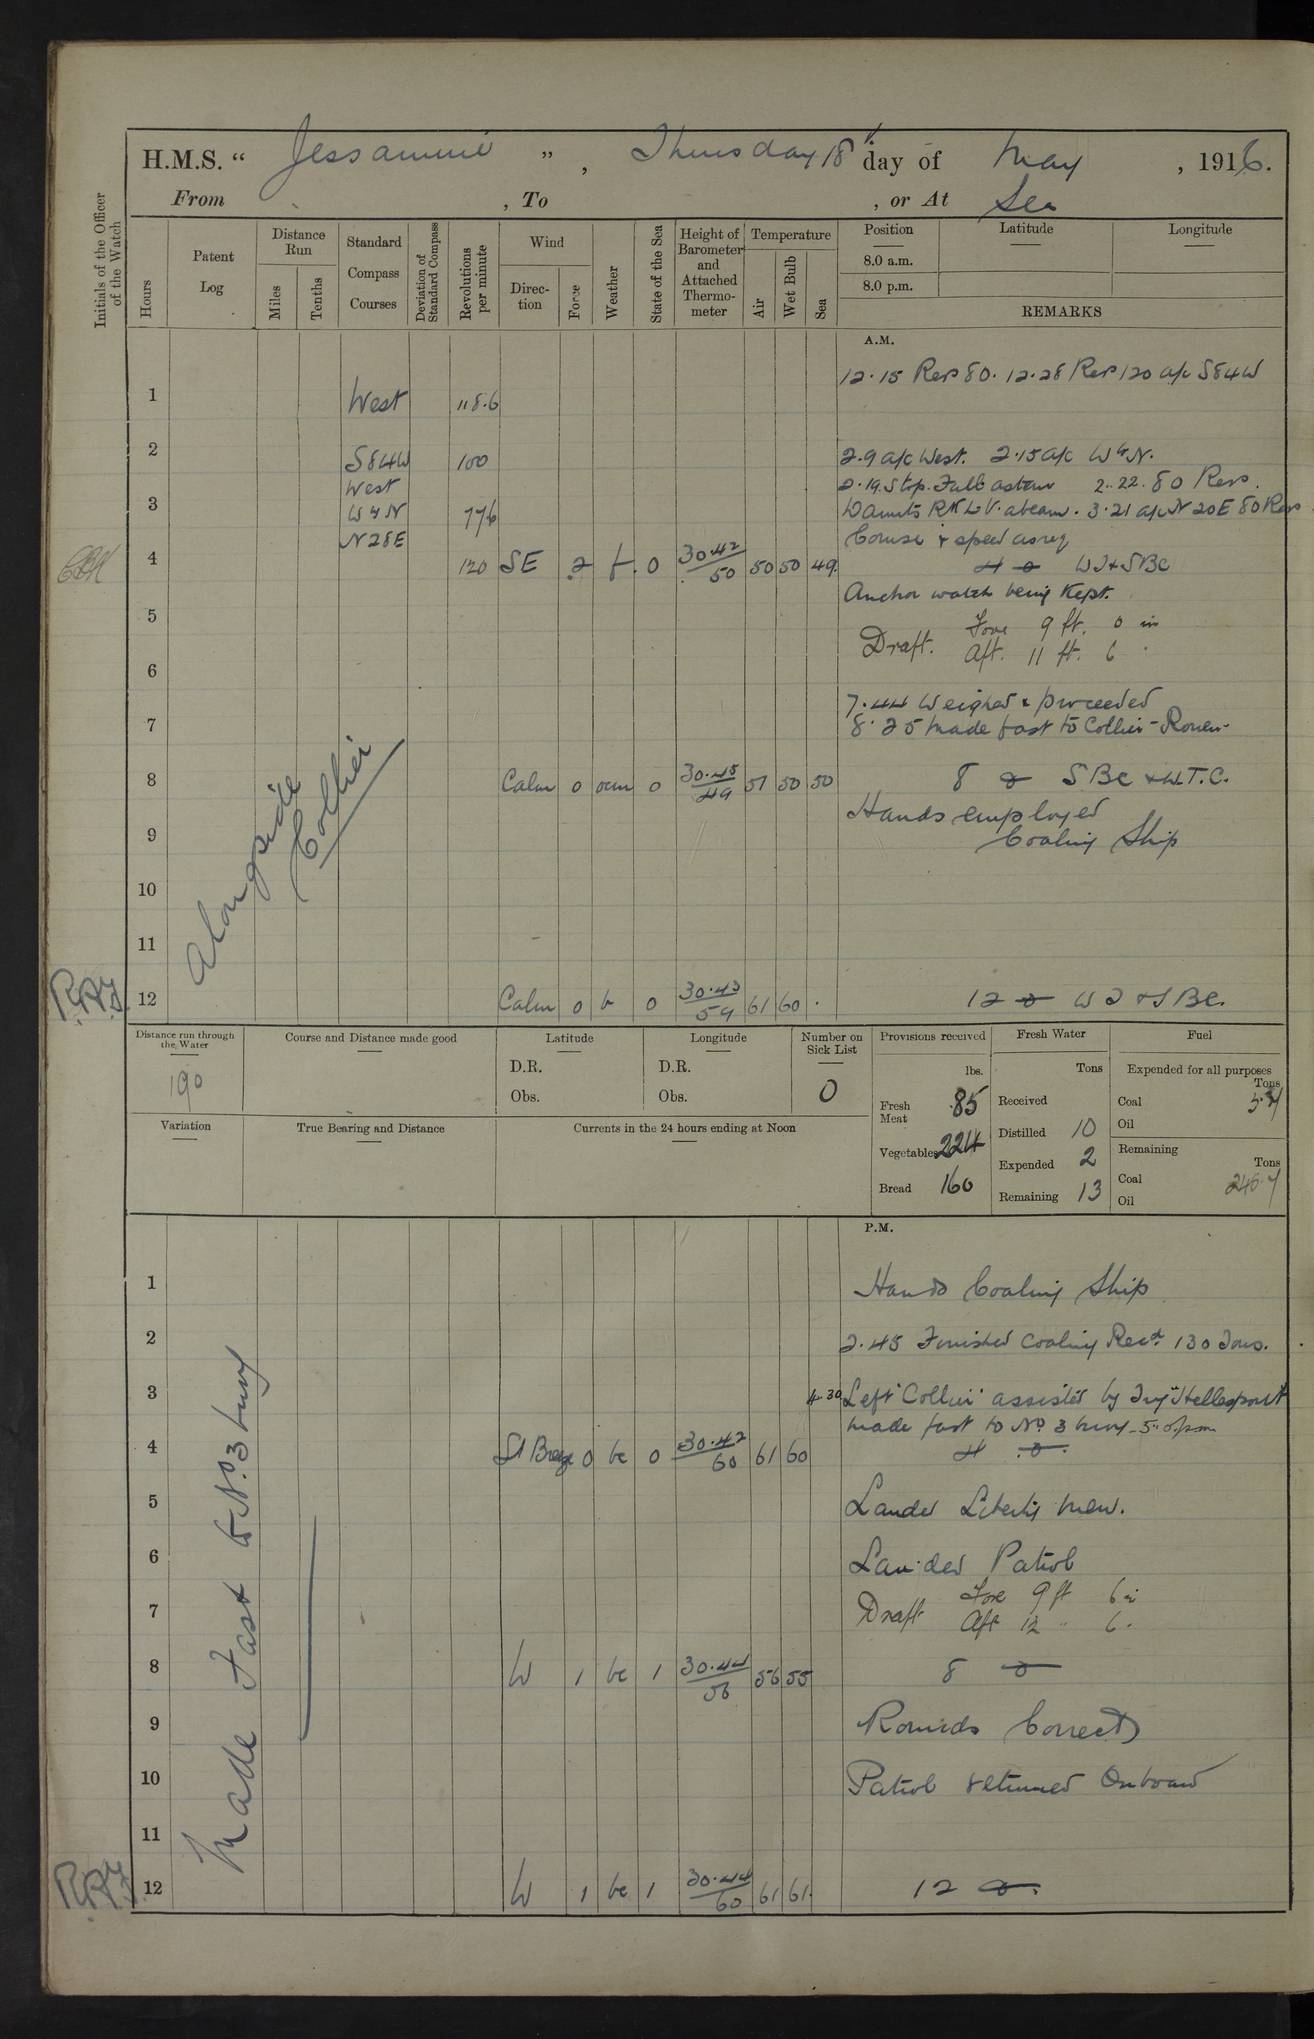 H.M.S. “ Jessamine ” , Thursday 18th day of May , 1916.
From , To , or At Sea
Initials of the Officer of the Watch
Hours
Patent Log
Distance Run
Miles
Tenths
Standard Compass Courses
Deviation of Standard Compass
Revolutions per minute
Wind
Direction
Force
Weather
State of the Sea
Height of Barometer and Attached Thermometer
Temperature
Air
Wet Bulb
Sea
Position
Latitude
Longitude
8.0 a.m.
8.0 p.m.
REMARKS
A.M.
12.15 Revs 80. 12.28 Revs 120 a/c S84W
1 West 118.6
2 S84W 100 2.9 a/c West. 2.15 a/c WbyN.
West 2.19 Stop. Fall astern 2.22. 80 Revs.
3 WbyN 776 Daunts Rk L.V. abeam. 3.21 a/c N20E 80 Revs
N28E Course & speed as req
4 120 SE 2 f. 0 30.42/50 50 50 49 4 WT & SBC
Anchor watch being kept.
5 Draft. Fore 9 ft. 0 in
Aft. 11 ft. 6 "
6
7.44 Weighed & proceeded
7 8.25 made fast to Collier - Rouen -
8 Calm 0 ocm 0 30.45/49 51 50 50 8 SBC & W.T.C.
Hands employed
9 Coaling Ship
Alongside Collier
10
11
12 Calm 0 b 0 30.43/59 61 60 12 WT & SBC.
Distance run through the Water
190
Course and Distance made good
Latitude
D.R.
Obs.
Longitude
D.R.
Obs.
Number on Sick List
0
Provisions received
lbs.
Fresh Meat 85
Vegetables 224
Bread 160
Fresh Water
Tons
Received
Distilled 10
Expended 2
Remaining 13
Fuel
Expended for all purposes
Tons
Coal
Oil
Remaining
Tons
Coal
Oil
Variation
True Bearing and Distance
Currents in the 24 hours ending at Noon
P.M.
1 Hands Coaling Ship
2 2.45 Finished Coaling Recd. 130 Tons.
3 4.30 Left "Collier" assisted by Tug "Hellespont"
made fast to No 3 buoy - 5.0 pm
4 Lt Breeze 0 bc 0 30.42/60 61 60 4
5 Landed Liberty men.
6 Landed Patrol
7 Draft Fore 9 ft 6 in
Aft 12 " 6 "
8 W 1 bc 1 30.44/56 56 55 8
9 Rounds Correct
10 Patrol returned Onboard
11
12 W 1 bc 1 30.44/60 61 61 12
Made Fast to No. 3 buoy